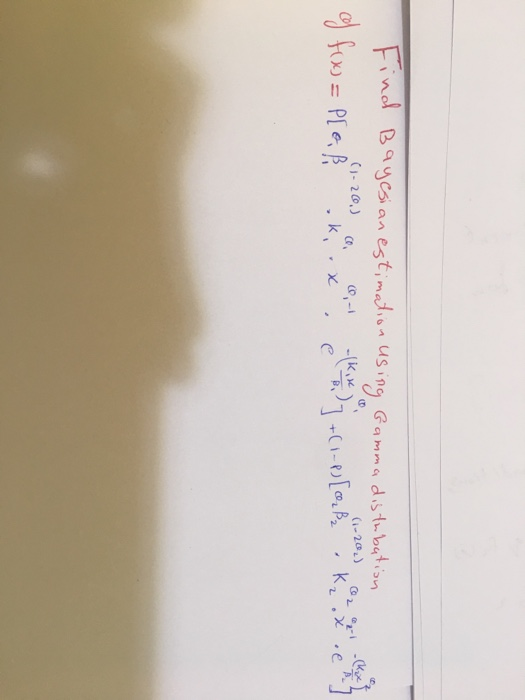 Find Bayesian estimation using Gamma distribution
of f(x) = P[θ₁ β₁^(1-2θ₁) . k₁^θ₁ . x^(θ₁-1) . e^-(k₁x/β₁)^θ₁] + (1-P)[θ₂ β₂^(1-2θ₂) . k₂^θ₂ . x^(θ₂-1) . e^-(k₂x/β₂)^θ₂]